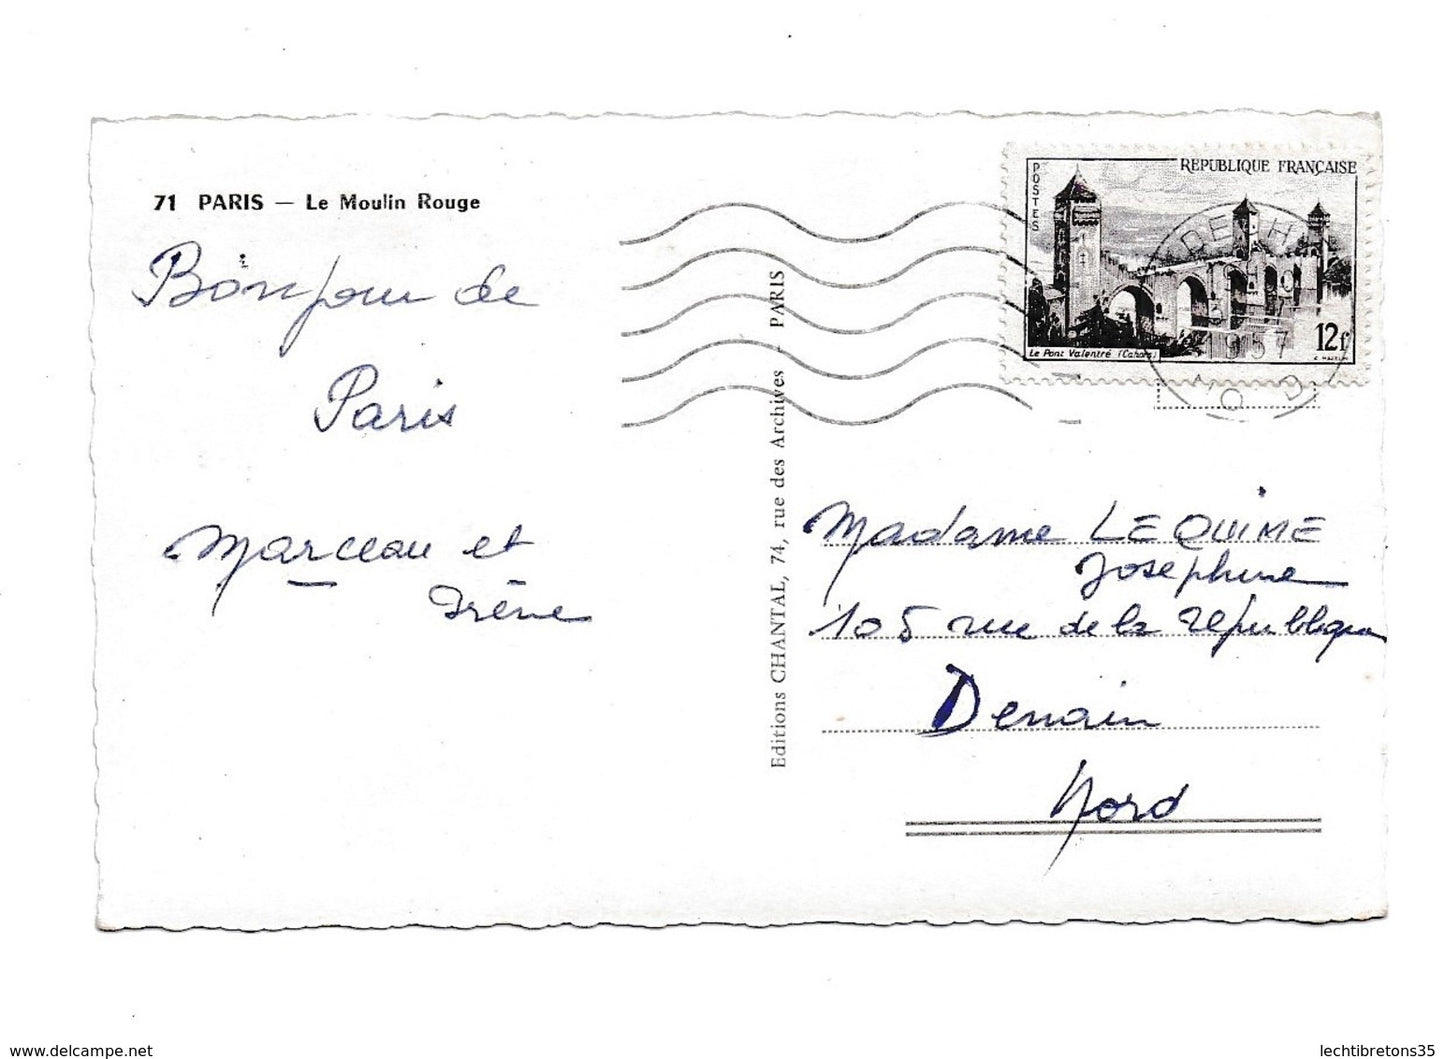 71 PARIS — Le Moulin Rouge
Bonjour de
Paris
Marceau et
Irène
Editions CHANTAL, 74, rue des Archives - PARIS
POSTES
REPUBLIQUE FRANÇAISE
Le Pont Valentré (Cahors)
12f
1957
Madame LEQUIME
Josephine
105 rue de la republique
Denain
Nord
www.delcampe.net
lechtibretons35